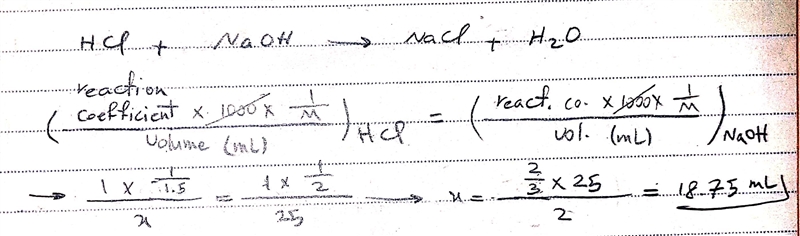 HCl + NaOH → NaCl + H₂O
( (reaction coefficient × 1000 × 1/M) / (volume (mL)) )HCl = ( (react. co. × 1000 × 1/M) / (vol. (mL)) )NaOH
→ (1 × 1/1.5) / x = (1 × 1/2) / 25 → x = (2/3 × 25) / 2 = 18.75 mL